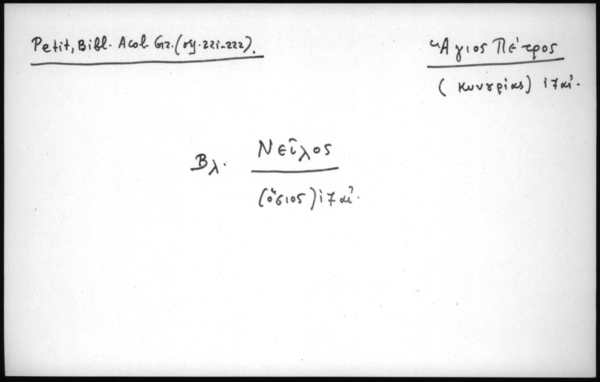 Petit, Bibl. Acol. Gr. (σσ. 221-222).
Ἅγιος Πέτρος
(Κυνουρίας) ἰζ αἰ.
Βλ. Νεῖλος
(ὅσιος) ἰζ αἰ.